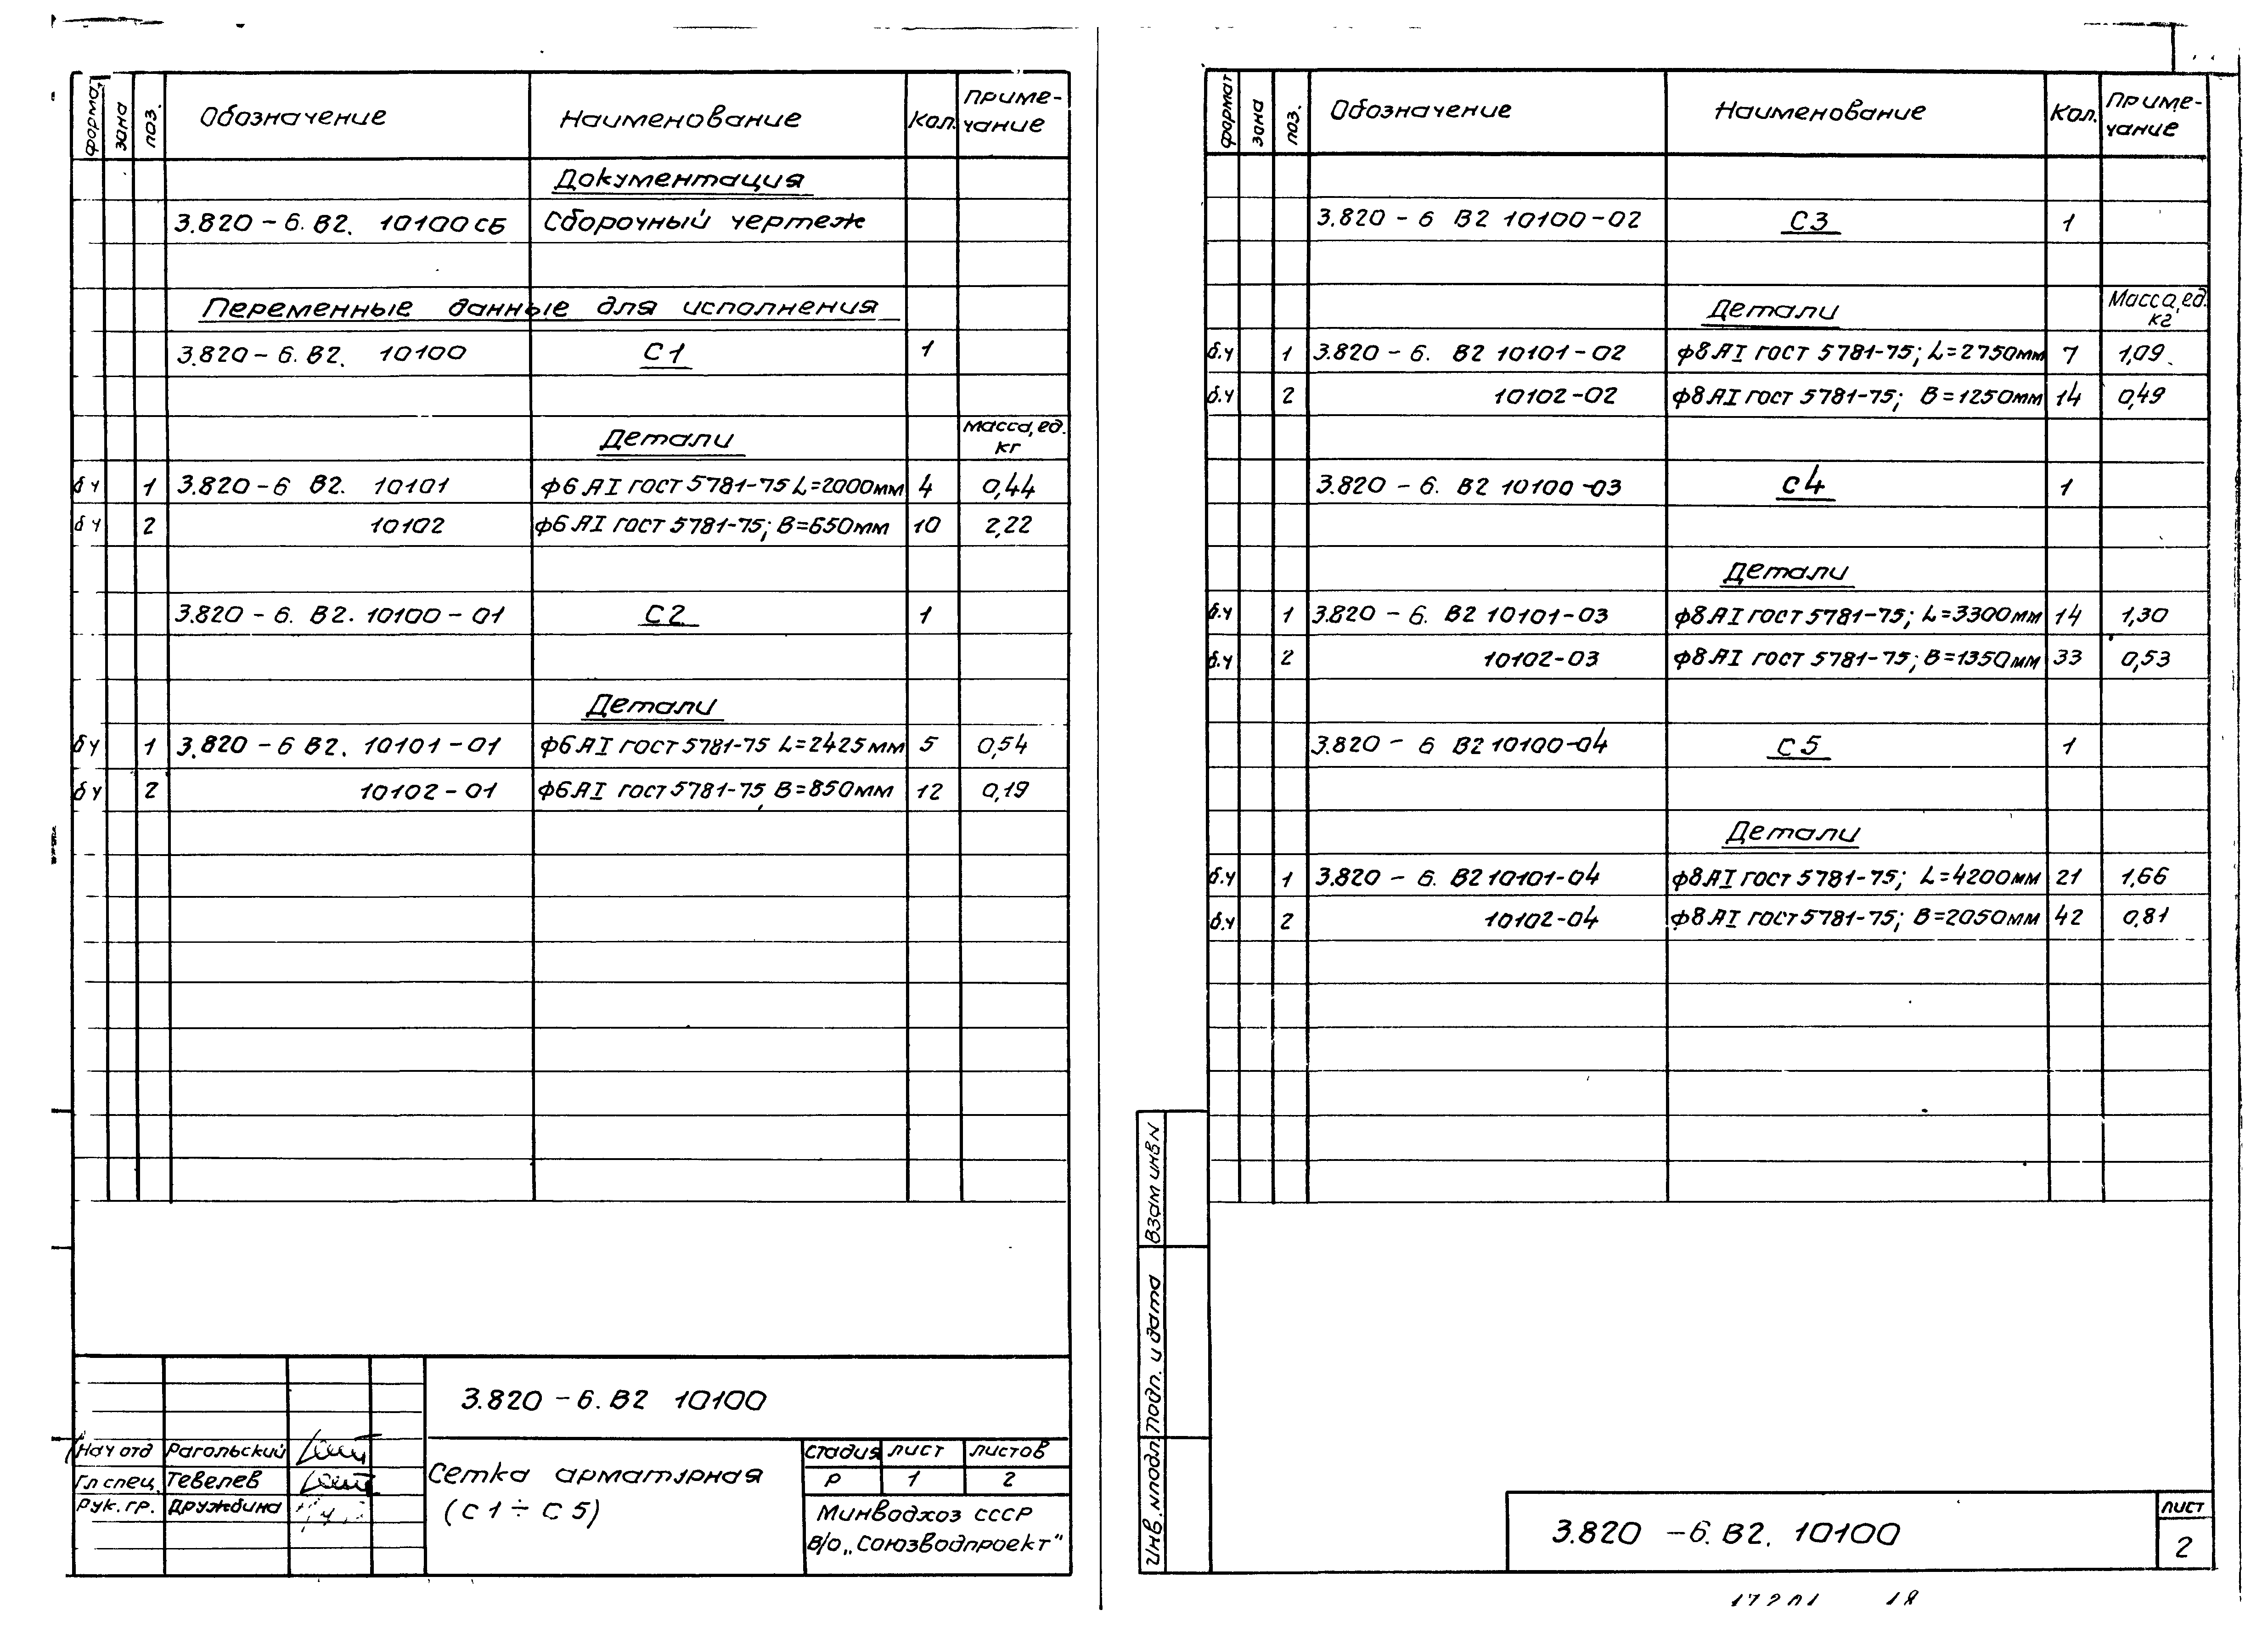 форма, зона поз. Обозначение Наименование Кол. Приме-
чание
Документация
3.820 – 6. В2. 10100 СБ Сборочный чертеж
Переменные данные для исполнения
3.820 – 6. В2. 10100 С1 1
Детали Масса, ед.
кг
бч 1 3.820 – 6 В2. 10101 ф6 АI ГОСТ 5781-75 L=2000мм 4 0,44
бч 2 10102 ф6 АI ГОСТ 5781-75; В=650мм 10 2,22
3.820 – 6. В2. 10100 – 01 С2 1
Детали
бч 1 3.820 – 6 В2. 10101 – 01 ф6 АI ГОСТ 5781-75 L=2425мм 5 0,54
бч 2 10102 – 01 ф6 АI ГОСТ 5781-75, В=850мм 12 0,19
3.820 – 6. В2 10100
Нач отд Рагольский
Гл спец. Тевелев
Рук. гр. Дружбина
Сетка арматурная
(С1 ÷ С5)
стадия лист листов
Р 1 2
Минводхоз СССР
В/О „Союзводпроект"
формат зона поз. Обозначение Наименование Кол. Приме-
чание
3.820 – 6 В2 10100 – 02 С3 1
Детали Масса, ед.
кг
б.ч 1 3.820 – 6. В2 10101 – 02 ф8 АI ГОСТ 5781-75; L=2750мм 7 1,09
б.ч 2 10102-02 ф8 АI ГОСТ 5781-75; В=1250мм 14 0,49
3.820 – 6. В2 10100 -03 С4 1
Детали
б.ч 1 3.820 – 6. В2 10101-03 ф8 АI ГОСТ 5781-75; L=3300мм 14 1,30
б.ч 2 10102-03 ф8 АI ГОСТ 5781-75; В=1350мм 33 0,53
3.820 – 6 В2 10100-04 С5 1
Детали
б.ч 1 3.820 – 6. В2 10101-04 ф8 АI ГОСТ 5781-75; L=4200мм 21 1,66
б.ч 2 10102-04 ф8 АI ГОСТ 5781-75; В=2050мм 42 0,81
Взам инв N
Подп. и дата
Инв. N подл.
3.820 – 6. В2. 10100
лист
2
17201 18